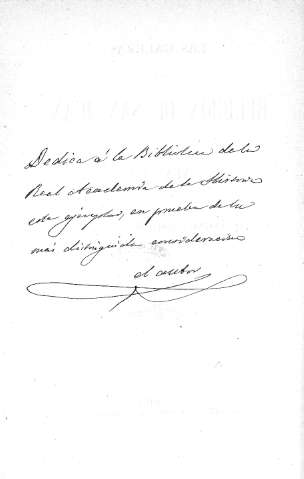 Dedica á la Biblioteca de la
Real Academia de la Historia
este ejemplar, en prueba de su
más distinguida consideracion
el autor